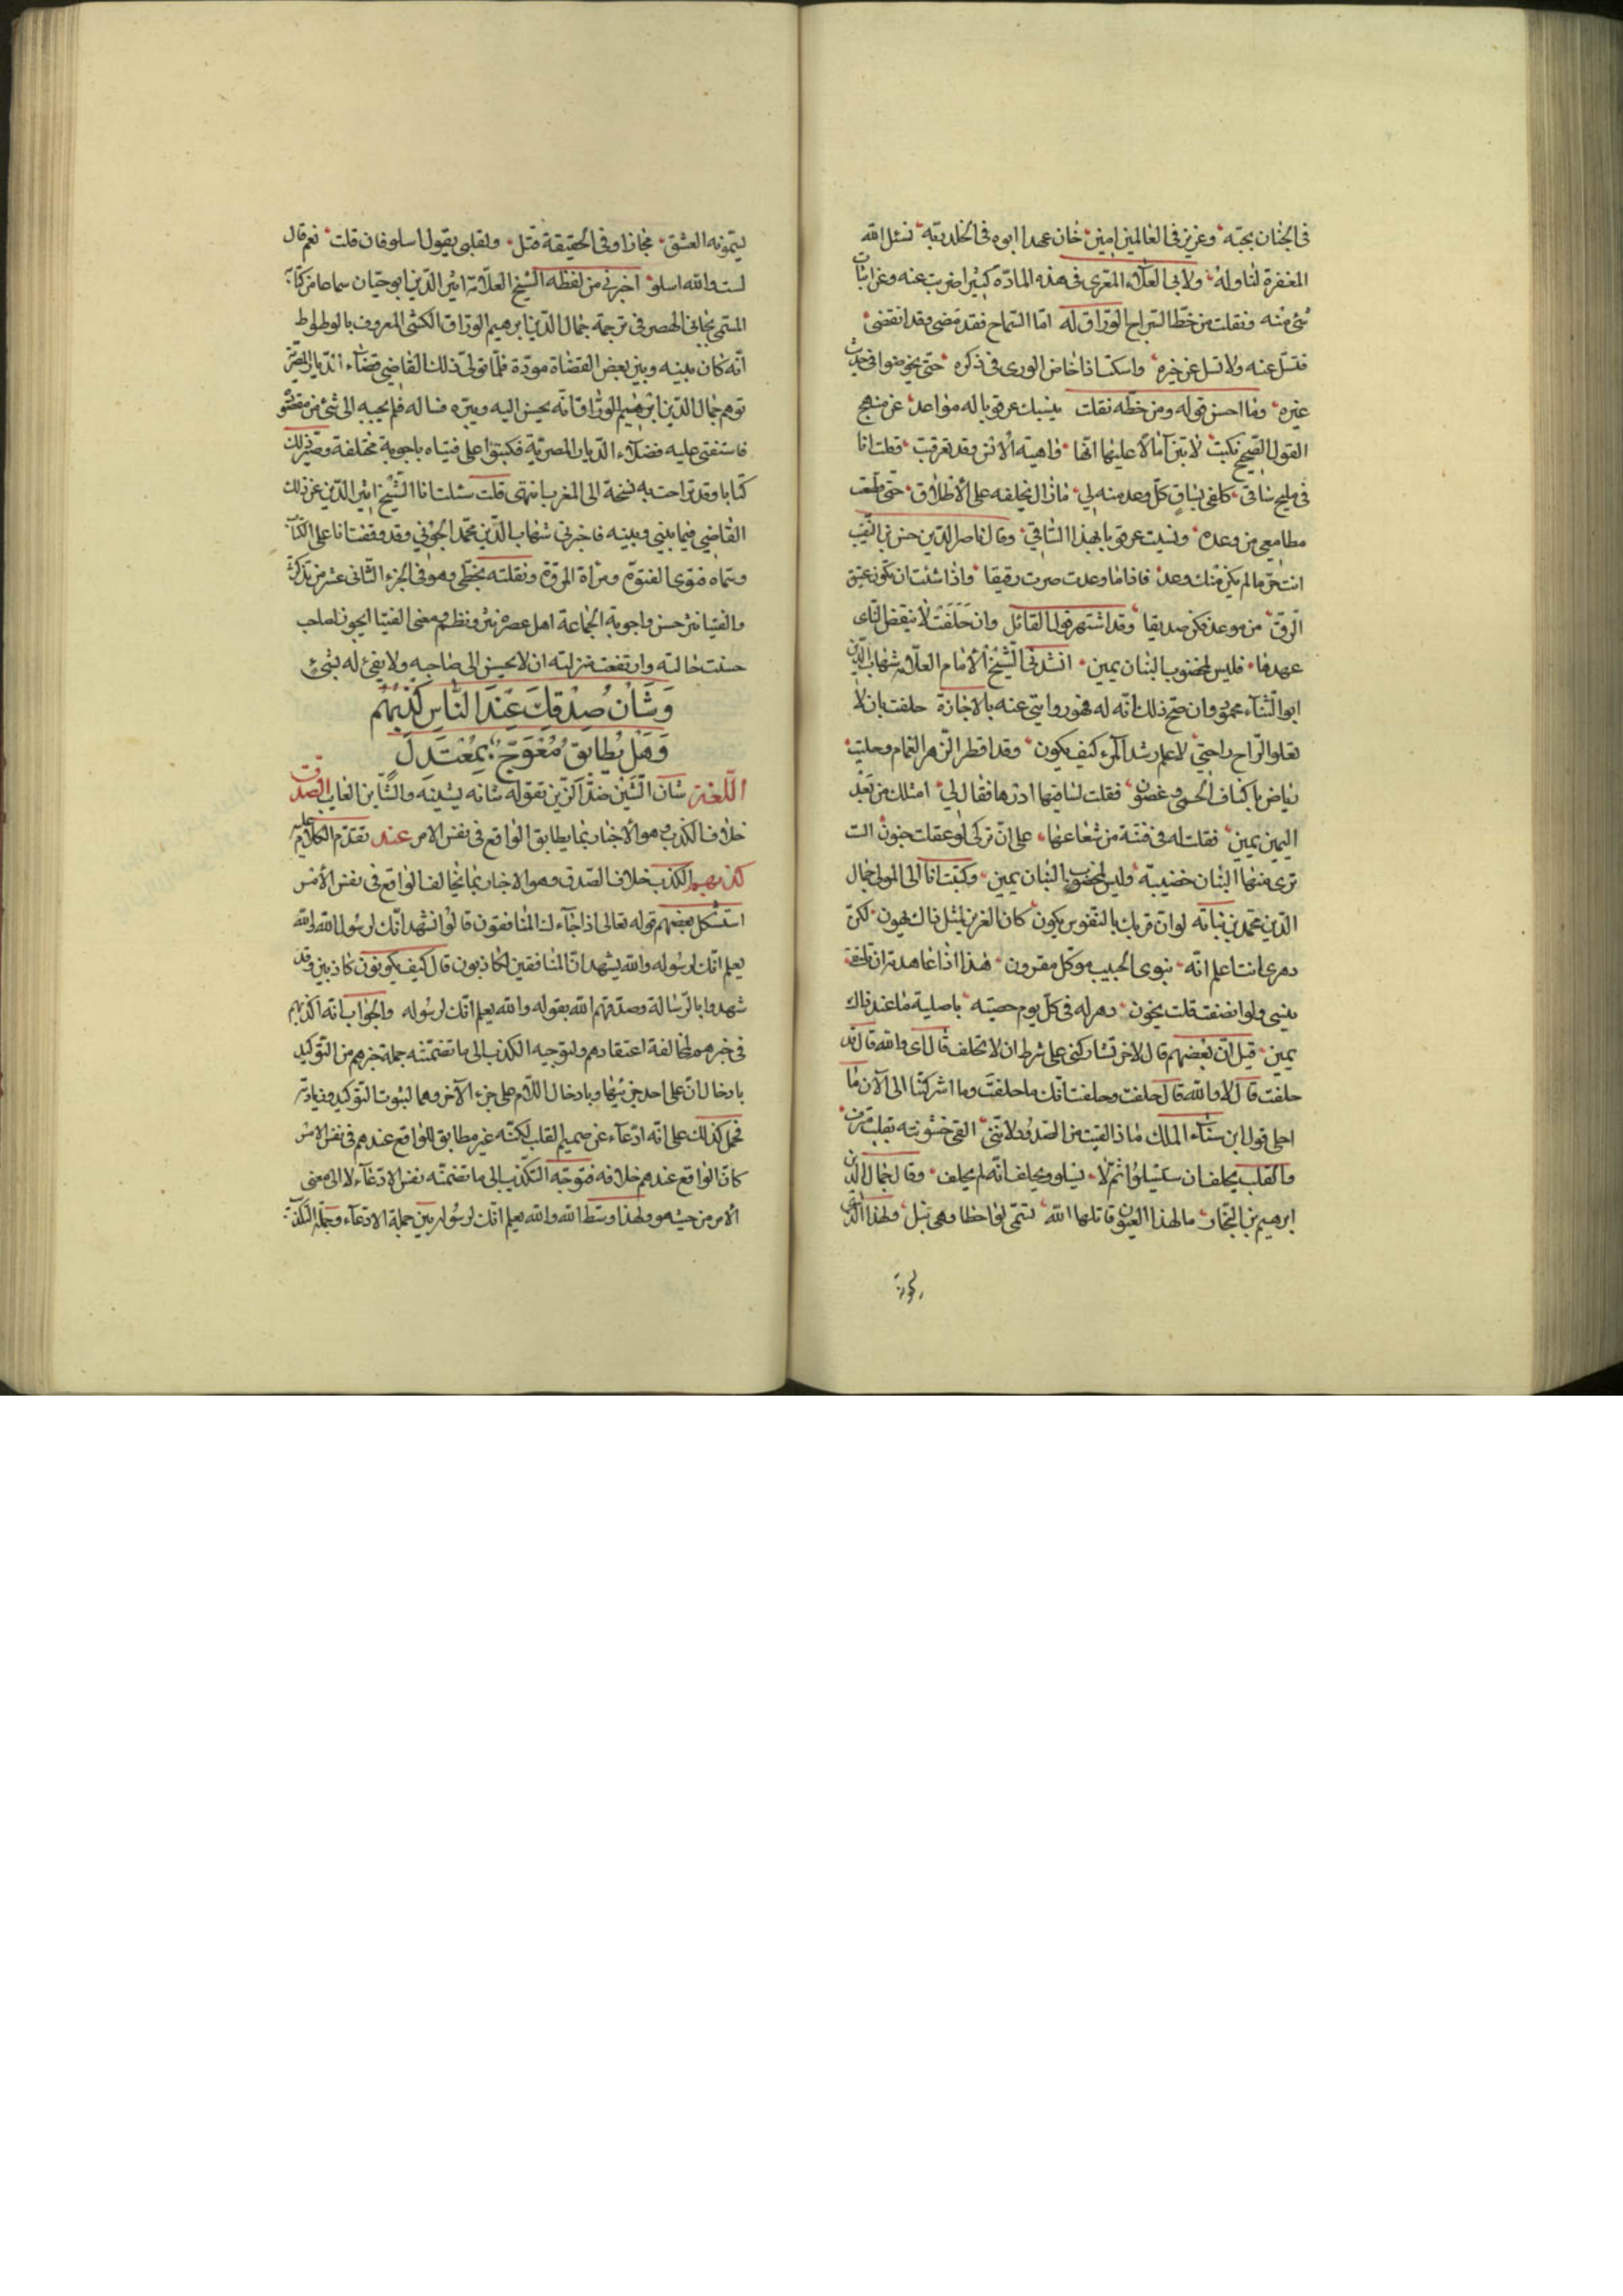 في الجنان بجبّه وعزيز في العالمين امين خان عهدا ابوه في الخلد بقه نسئل الله
المغفرة لنا وله ولابى العلاء المعرى فى هذه المادّه كثير اضربت عنه وعن اثبات
شئ منه ونقلت من خطّ السراج الورّاق له امّا السّماح فقد مضى وقد انقضى
فتسلّ عنه ولا تسل عن خيره واسكت اذا خاض الورى فى ذكره حتّى يخوضوا فى حديث
غيره وما احسن قوله ومن خطّه نقلت عرقوبا له مواعد عن منهج
القول الصحيح نكبت
فى مليح ساقى كلفى بساق كلّ وعد منه لي ما زال يخلفه على الاطلاق حتّى قطعت
مطامعي من وعده ونسيت عرقوبا بهذا السّاقي وقال ناصر الدّين حسن بن النقيب
انت حرّ ما لم يكن منك وعد فاذا ما وعدت صرت رقيقا واذا شئت ان تكون عتيق
الرّق من موعد فكن صديقا وقد اشتهر قول القائل وان حلفت لا ينقض النّاى
عهدها فليس لمخضوب البنان يمين انشدنى الشّيخ الامام العلّامة شهاب الدّين
ابو الثّناء محمود وان صحّ ذلك انّه له فهو روايتى عنه بالاجازة حلفت بان لا
تعلو الرّاح راحتي لاعلم رشد المرء كيف يكون وقد اقطر الزّهر الغمام وحليت
رياض باكناف الحمى وغصون فقلت لساقيها ادرها فقال لي امثلك من بعد
اليمين يمين فقلت له فى فتنة من شعاعها على انّ تركى لو عقلت جنون الست
ترى منها البنان خضيبة وليس لمخضوب البنان يمين وكتبت انا الى المولى جمال
الدّين محمّد بن نباته لو انّ قربك بالنفوس يكون كان العزيز لمثل ذاك يهون لكنّ
دهرى انت اعلم انّه بنوى الحبيب موكل مقرون هذا اذا عاهدته ان نلتقى
ينسى ولو انصفت قلت يخون دهر له فى كلّ يوم حصته باصلية ما عند ذاك
يمين قيل انّ بعضهم قال لاخر تشاركنى على شرط ان لا تحلف قال اى والله قال قد
حلفت قال لا والله قال حلفت وحلفت انّك ما حلفت وما اشركتنا الى الآن ما
احلى قول ابن سناء الملك ماذا لقيت من الصّدود لانّنى القى خشونته بقلب مترف
والقلب يحلف ان سيسلو ثم لا يسلو ويحلف انّه لم يحلف وقال جمال الدّين
ابرهيم بن النّجار ما لهذا العيون قاتلها الله تسمّى لواحظا وهى نبل ولهذا الّذى
يسمونه العشق مجازا وفى الحقيقة قتل ولقلبى يقول اسلو فان قلت نعم قال
لست والله اسلو اخبرنى من لفظه الشّيخ العلّامة اثير الدّين ابو حيّان سماعا من كتابه
المسمّى بمجانى الهصر فى ترجمة جمال الدّين ابرهيم الورّاق الكتبى المعروف بالوطواط
انّه كان بينه وبين بعض القضاة مودّة فلمّا تولّى ذلك القاضى قضاء الدّيار المصريّه
توهم جمال الدّين ابرهيم الورّاق انّه يحسن اليه ويبرّه فساله فلم يجبه الى شئ من مقصوده
فاستفتى عليه فضلاء الدّيار المصريّة فكتبوا على فتياه باجوبة مختلفة وصيّر ذلك
كتابا وقد راحت به نسخة الى المغرب انتهى قلت سئلت انا الشّيخ اثير الدّين عن ذلك
القاضى فيما بينى وبينه فاخبرنى شهاب الدّين محمّد الخوئي وقد وقفت انا على الكتاب
وسمّاه فتوى الفتوّه ومرآة المروّة ونقلته بخطّى وهو فى الجزء الثّانى عشر من تذكرتى
والفتيا نثر حسن واجوبة الجماعة اهل عصره نثر ونظم ومعنى الفتيا ايجوز لصاحب
حسنت حالته وارتفعت منزلته ان لا يحسن الى صاحبه ولا يفئ له بشئ
وَشَانَ صِدْقَكَ عِنْدَ النَّاسِ كِذْبُهُمْ
وَهَلْ يُطَابَقُ مُعْوَجٌّ بِمُعْتَدِلِ
اللّغة شان الشّين ضدّ الزّين تقول شانه يشينه والشّاين العايب الصّدق
خلاف الكذب وهو الاخبار بما يطابق الواقع فى نفس الامر عند تقدّم الكلام عليه
كذبهم الكذب خلاف الصّدق وهو الاخبار بما يخالف الواقع فى نفس الأمر
استشكل بعضهم قوله تعالى اذا جاءك المنافقون قالوا نشهد انّك لرسول الله والله
يعلم انّك لرسوله والله يشهد انّ المنافقين لكاذبون قال كيف يكونون كاذبين وقد
شهدوا بالرّسالة وصدّقهم الله بقوله والله يعلم انّك لرسوله والجواب انّه اكذبهم
فى خبرهم لمخالفة اعتقادهم ولتوجيه الكذب الى ما تضمّنته جملة خبرهم من التّوكيد
بادخال انّ على احد جزئيها وبادخال اللّام على جزء الآخر وهما لثبوت التّوكيد وزيادته
فحمل كذلك على انّه ادّعاء عن صميم القلب لكنّه غير مطابق للواقع عندهم فى نفس الامر
كانّ الواقع عندهم خلافه فتوجّه التّكذيب الى ما تضمنّه نفس الادّعاء لا الى معنى
الأمر من حيث هو ولهذا وسّط الله والله يعلم انّك لرسوله بين جملة الادعاء وجملة التكذيب